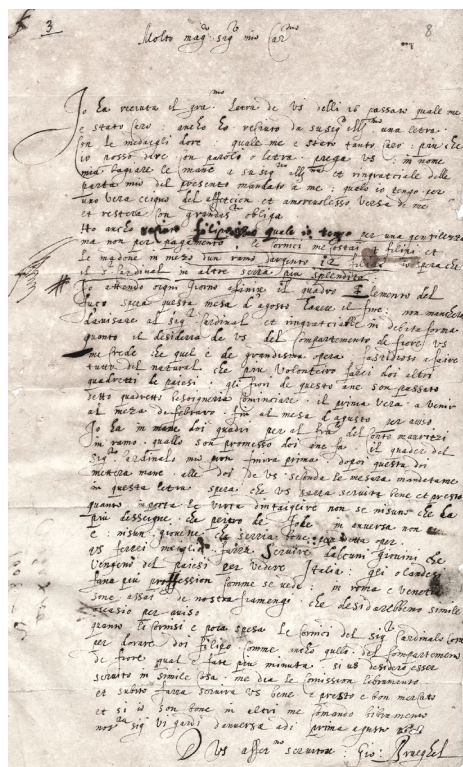 3
8
Molto mag.co sig.r mio
Io ha receuta il gra.mo letra de VS delli 16 passato quale me
e stato caro anche ho receuto da su sig. ill.mo una letra
con le medaglie dore quale me e stato tanto caro piu che
io posso dire con parole o letra prega VS in nome
mia bagiare le mane a su sig. ill.ma et ringratiale delle
parte mio del presento mandato a me quelo io tengo per
uno vera ceigno del affetcion et amorevolesso versa di me
et restera con grandiss. obliga
Ho anche quale io tengo per una gentilezza
ma non per pagamento le cornici me costai filipi et
le madone in mezo d'un ramo d'argento 12 io spera che
il s.r Cardinal in altre sera piu splendito
Io attendo ogni giorno a finire il quadro Elemento del
fuco spera questa mesa d'agosto avere il fine non manchera
d'avisare al sig.r Cardinal et ringratiable in debita forma
quanto il desidaria de VS del compartemento de fiore VS
me crede che quel e de grandisma opera fastidioso a faire
tutti del natural che piu volontiero farei doi altri
quadretti de paiesi gli fiori de questo ane son passato
detto quadretto besognieria cominciare il prima vera a venir
al meza de febraro fin al mesa d'agusto per aviso
Io ha in mane doi quadri per al sig. conte
in ramo quallo son promesso doi ane fa il quader del
sig.r Cardinalo mio non finira prima dopoi questa di
mettera mane alle doi de VS seconda le mesura mandatome
in questa letra spera che VS sarra servita bene et presto
quanto importa le virra d'intaigliere non se nisuno che ha
piu desseigne che per in anversa non
e nisun giovene che serria bene per
VS ferrei meiglio farra servire dalcuni giovini che
vengeno del paiesi per vedere Italia gli olandesi
fano piu proffession comme se vede in roma e venetia
sone assai de nostra framengi che desidarebbeno simile
occasio per aviso
quanto le cornisi e poca spesa le cornici del sig.r Cardinalo costa
per dorare doi filipo comme anche quello del compartemento
de fiore qual e fate piu minuta si VS desidero esser
servito in simile cosa me dia le comission libramento
et subito farra servira VS bene e presto e bon mercato
et si io son bone in altri me comando libramento
nos.ro sig vi gardi d'anversa adi prima agusto
D VS affet.mo servitore Gio: Brueghel